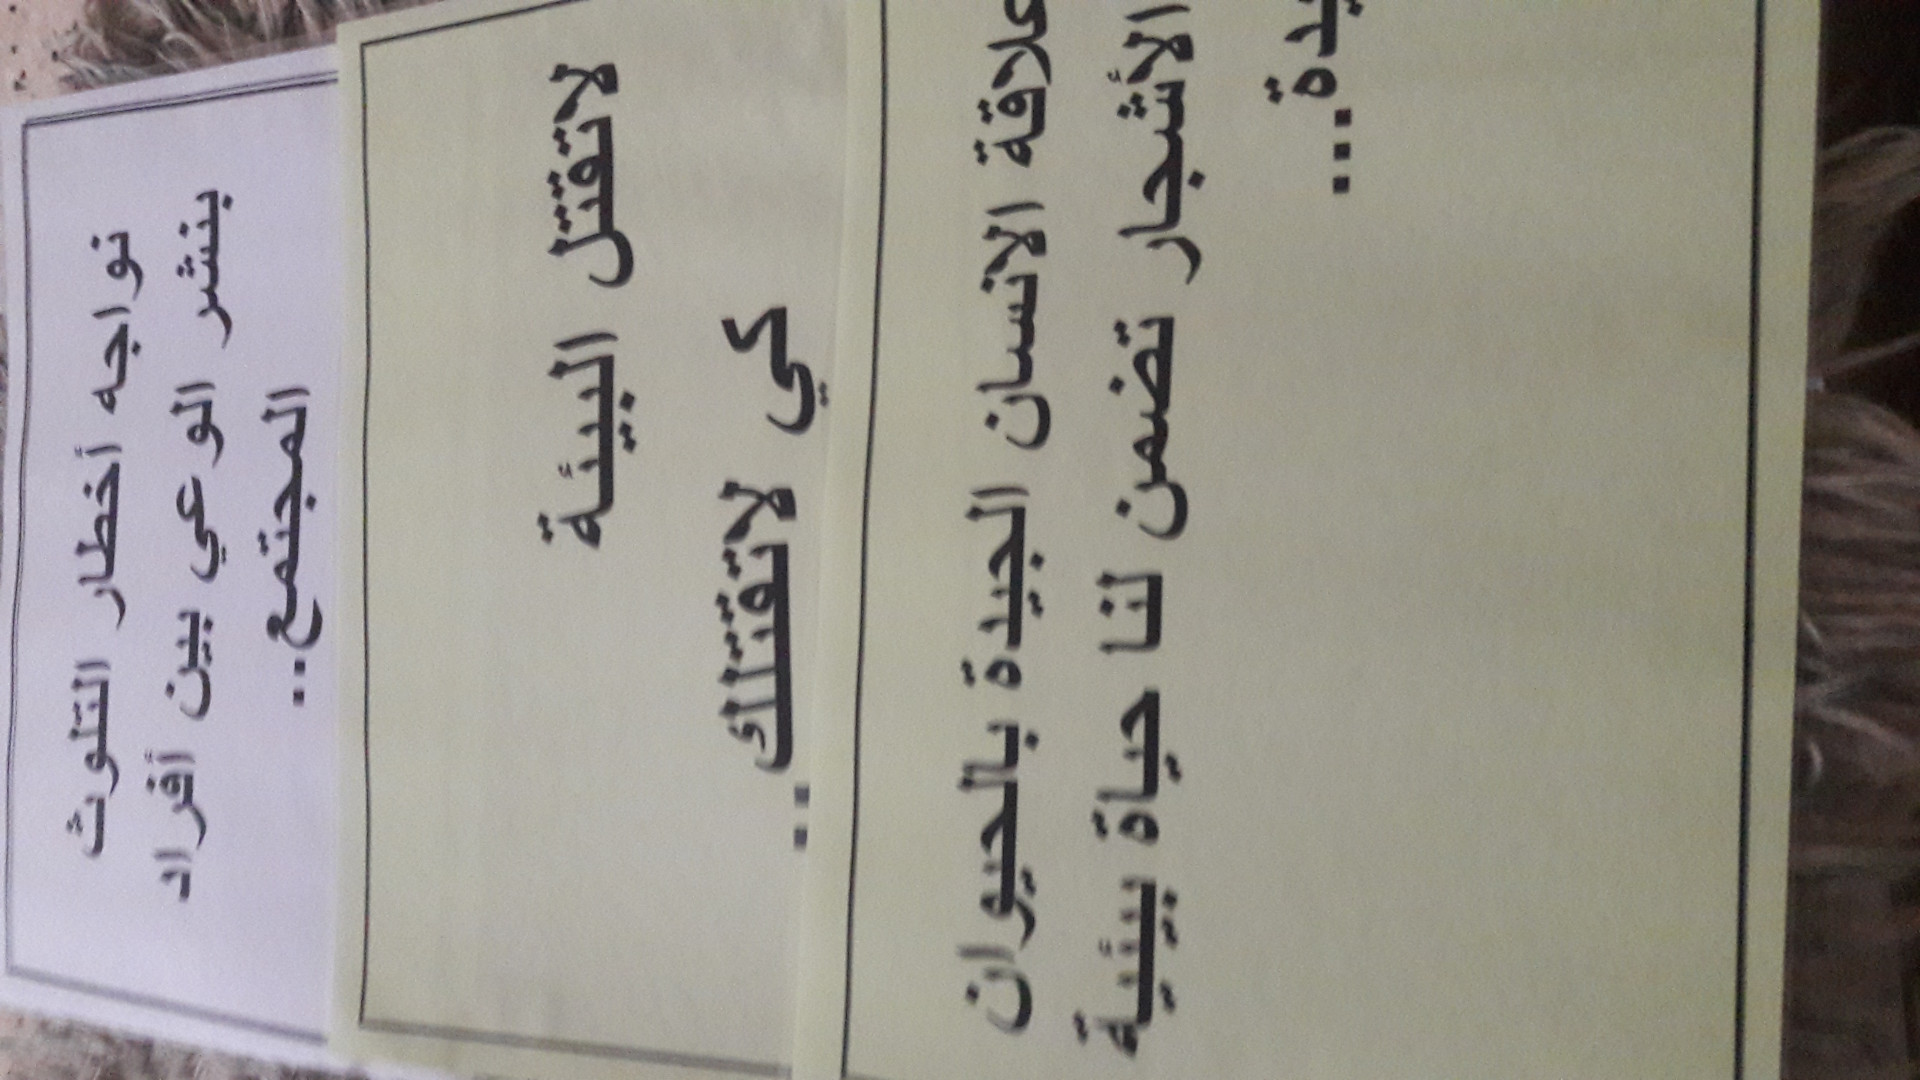 نواجه أخطار التلوث
بنشر الوعي بين أفراد
المجتمع..
لاتقتل البيئة
كي لاتقتلك
..
علاقة الانسان الجيدة بالحيوان
الأشجار تضمن لنا حياة بيئية
...